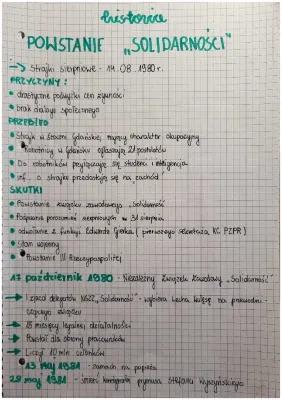 historia
POWSTANIE „SOLIDARNOŚCI”
→ Strajki sierpniowe - 14.08.1980r.
PRZYCZYNY:
• drastyczne podwyżki cen żywności
• brak dialogu społecznego
PRZEBIEG
• Strajk w Stoczni Gdańskiej mający charakter okupacyjny
• Robotnicy w Gdańsku ogłaszają 21 postulatów
• Do robotników przyłączają się studenci i inteligencja
• inf. o strajku przedostają się na „zachód”
SKUTKI
• Powstanie związku zawodowego „Solidarność”
• Podpisanie porozumień sierpniowych w 31 sierpnia
• odwołanie z funkcji Edwarda Gierka (pierwszego sekretarza KC PZPR)
• Stan wojenny
• Powstanie III Rzeczypospolitej
17 październik 1980 - Niezależny Związek Zawodowy „Solidarność”
→ I zjazd delegatów NSZZ „Solidarność” - wybiera Lecha Wałęsę na przewodni-
czącego związku
→ 15 miesięcy legalnej działalności
→ Powstał dla obrony pracowników
→ Liczył 10 mln członków
13 maj 1981 - zamach na papieża
28 maj 1981 - śmierć kardynała prymasa Stefana Wyszyńskiego